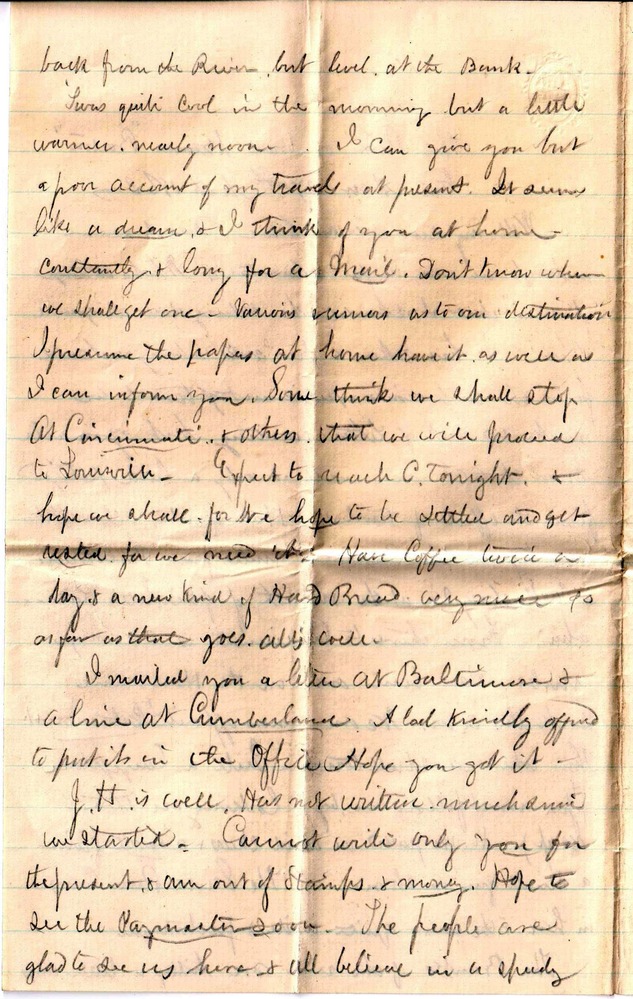 back from the River, but level, at the Bank.
Twas quite Cool in the morning but a little
warmer. nearly noon. I can give you but
a poor account of my travels at present. It seems
like a dream, & I think of you at home
constantly & long for a Mail. Don't know when
we shall get one - Various rumors as to our destination
I presume the papers at home have it as well as
I can inform you. Some think we shall stop
At Cincinnati, & others, that we will proceed
to Louisville - Expect to reach C. Tonight. &
hope we shall. for We hope to be settled and get
rested for we need it. Have Coffee twice a
day. & a new kind of Hard Bread very nice so
as far as that goes. all's well.
I mailed you a letter at Baltimore &
a line at Cumberland. A lad kindly offered
to put its in the Office Hope you got it -
J. H. is well. Has not written much since
we started. Cannot write only you for
the present, & am out of Stamps. & money. Hope to
see the Paymaster soon. The people are
glad to see us here & all believe in a speedy